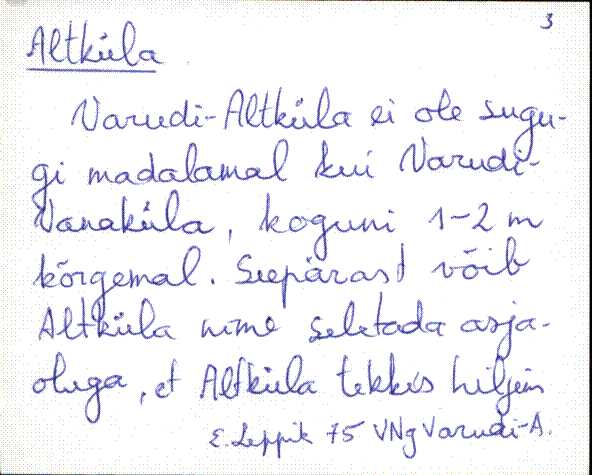 3
Altküla
Varudi-Altküla ei ole sugu-
gi madalamal kui Varudi-
Vanaküla, koguni 1-2 m
kõrgemal. Seepärast võib
Altküla nime seletada asja-
oluga, et Altküla tekkis hiljem
E. Leppik 75 VNg Varudi-A.